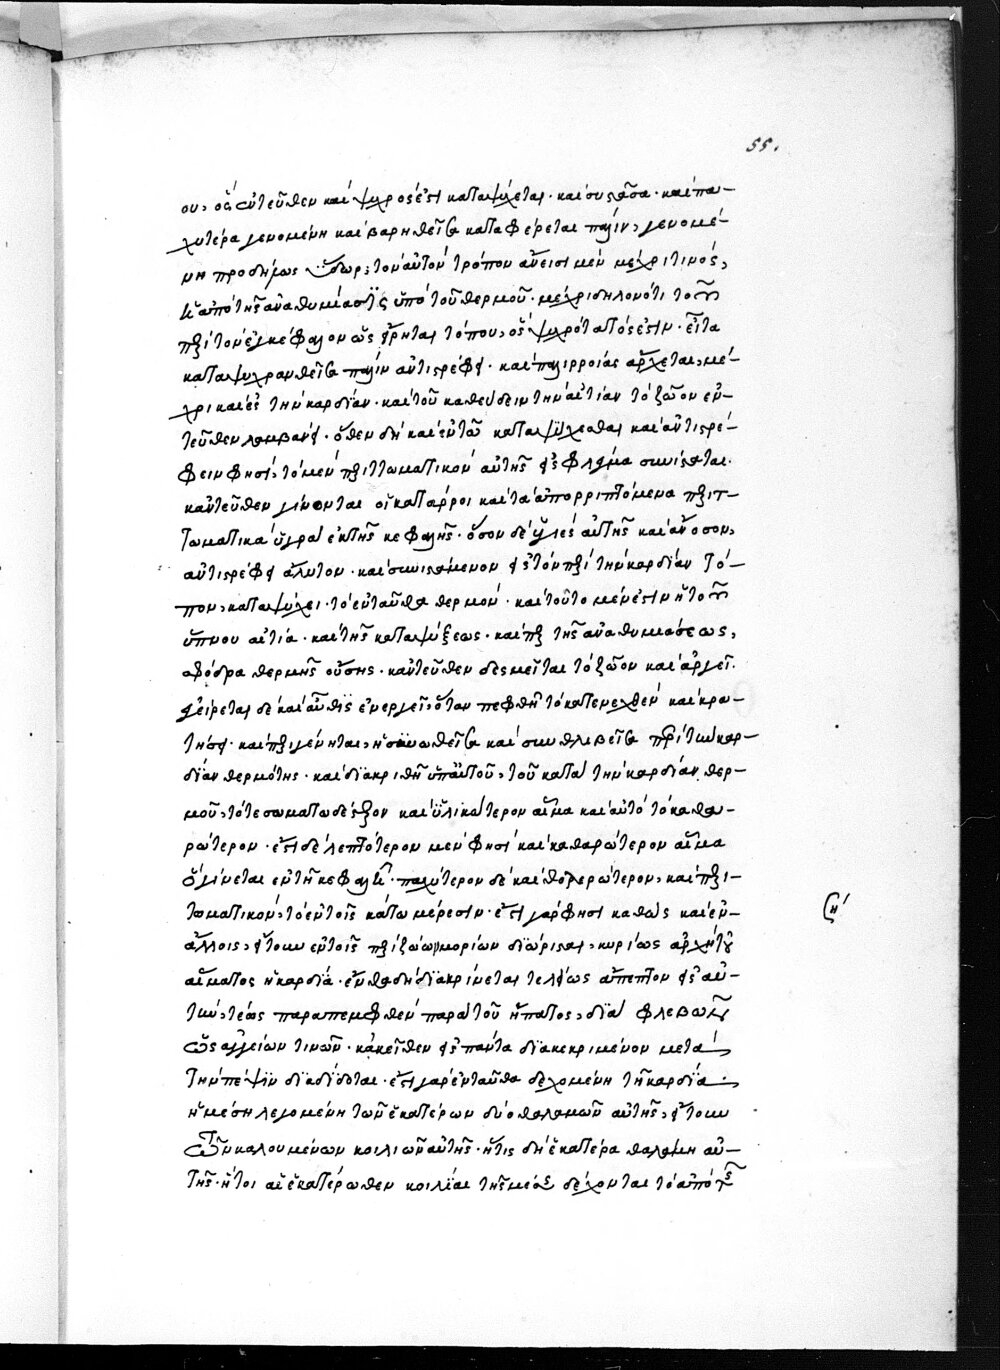 55.
ου, ὃς ἐντεῦθεν καὶ ψυχρός ἐστι καταψύχεται· καὶ συστᾶσα· καὶ πα-
χυτέρα γενομένη καὶ βαρηθεῖσα καταφέρεται πάλιν, γενομέ-
νη προδήμως ὕδωρ; τὸν αὐτὸν τρόπον ἄνεισι μὲν μέχρι τινός,
ἡ ἀπὸ τῆς ἀναθυμιάσεως ὑπὸ τοῦ θερμοῦ· μέχρι δηλονότι τοῦ
περὶ τὸν ἐγκέφαλον ὡς εἴρηται τόπου, ὃς ψυχρότατός ἐστιν· εἶτα
καταψυχρανθεῖσα πάλιν ἀντιστρέφει· καὶ παλιρροίας ἄρχεται, μέ-
χρι καὶ ἐς τὴν καρδίαν· καὶ τοῦ καθεύδειν τὴν αἰτίαν τὸ ζῶον ἐν-
τεῦθεν λαμβάνει· ὅθεν δὴ καὶ ἐν τῶ καταψύχεσθαι καὶ ἀντιστρέ-
φειν φησὶ, τὸ μὲν περιττωματικὸν αὐτῆς εἰς φλέγμα συνίσταται·
κἀντεῦθεν γίνονται οἱ κατάρροι καὶ τὰ ἀπορριπτόμενα περιτ-
τωματικὰ ὑγρὰ ἐκ τῆς κεφαλῆς· ὅσον δὲ ὑγιὲς αὐτῆς καὶ ἄνοσον,
ἀντιστρέφει ἄλυτον· καὶ συνιστάμενον εἰς τὸν περὶ τὴν καρδίαν τό-
πον, καταψύχει· τὸ ἐνταῦθα θερμόν· καὶ τοῦτο μέν ἐστιν ἡ τοῦ
ὕπνου αἰτία· καὶ τῆς καταψύξεως· καίπερ τῆς ἀναθυμιάσεως,
σφόδρα θερμῆς οὔσης· κἀντεῦθεν δεσμεῖται τὸ ζῶον καὶ ἀργεῖ·
ἐγείρεται δὲ καὶ αὖθις ἐνεργεῖ, ὅταν πεφθῆ τὸ κατενεχθὲν καὶ κρα-
τήσει· καὶ περιγένηται, ἡ συνωθεῖσα καὶ συνθλιβεῖσα περὶ τὴν καρ-
δίαν θερμότης· καὶ διακριθῆ ὑπ' αὐτοῦ, τοῦ κατὰ τὴν καρδίαν θερ-
μοῦ, τό τε σωματωδέστερον καὶ ὑλικώτερον αἷμα καὶ αὐτὸ τὸ καθα-
ρώτερον· ἔστι δὲ λεπτότερον μὲν φησὶ καὶ καθαρώτερον αἷμα
ὃ γίνεται ἐν τῆ κεφαλῆ· παχύτερον δὲ καὶ θολερώτερον, καὶ περιτ-
τωματικὸν, τὸ ἐν τοῖς κάτω μέρεσιν· ἔστι γάρ φησι καθὼς καὶ ἐν-
ἄλλοις, ἤτουν ἐν τοῖς περὶ ζώων μορίων διώρισται, κυρίως ἀρχὴ τοῦ
αἵματος ἡ καρδία· ἔνθα δὴ διακρίνεται τελείως ἄπεπτον εἰς αὐ-
τήν, τέως παραπεμφθὲν παρὰ τοῦ ἥπατος, διὰ φλεβῶν
ὡς ἀγγείων τινῶν· κἀκεῖθεν εἰς πάντα διακεκριμένον μετὰ
τὴν πέψιν διαδίδοται· ἔστι γὰρ ἐνταῦθα δεχομένη τῆ καρδία·
ἡ μέση λεγομένη τῶν ἑκατέρων δύο θαλαμῶν αὐτῆς, ἤτουν
τῶν καλουμένων κοιλιῶν αὐτῆς· ἥτις δὴ ἑκατέρα θαλάμη αὐ-
τῆς· ἤτοι αἱ ἑκατέρωθεν κοιλίαι τῆς μέσης δέχονται τὸ ἀπὸ τῆς